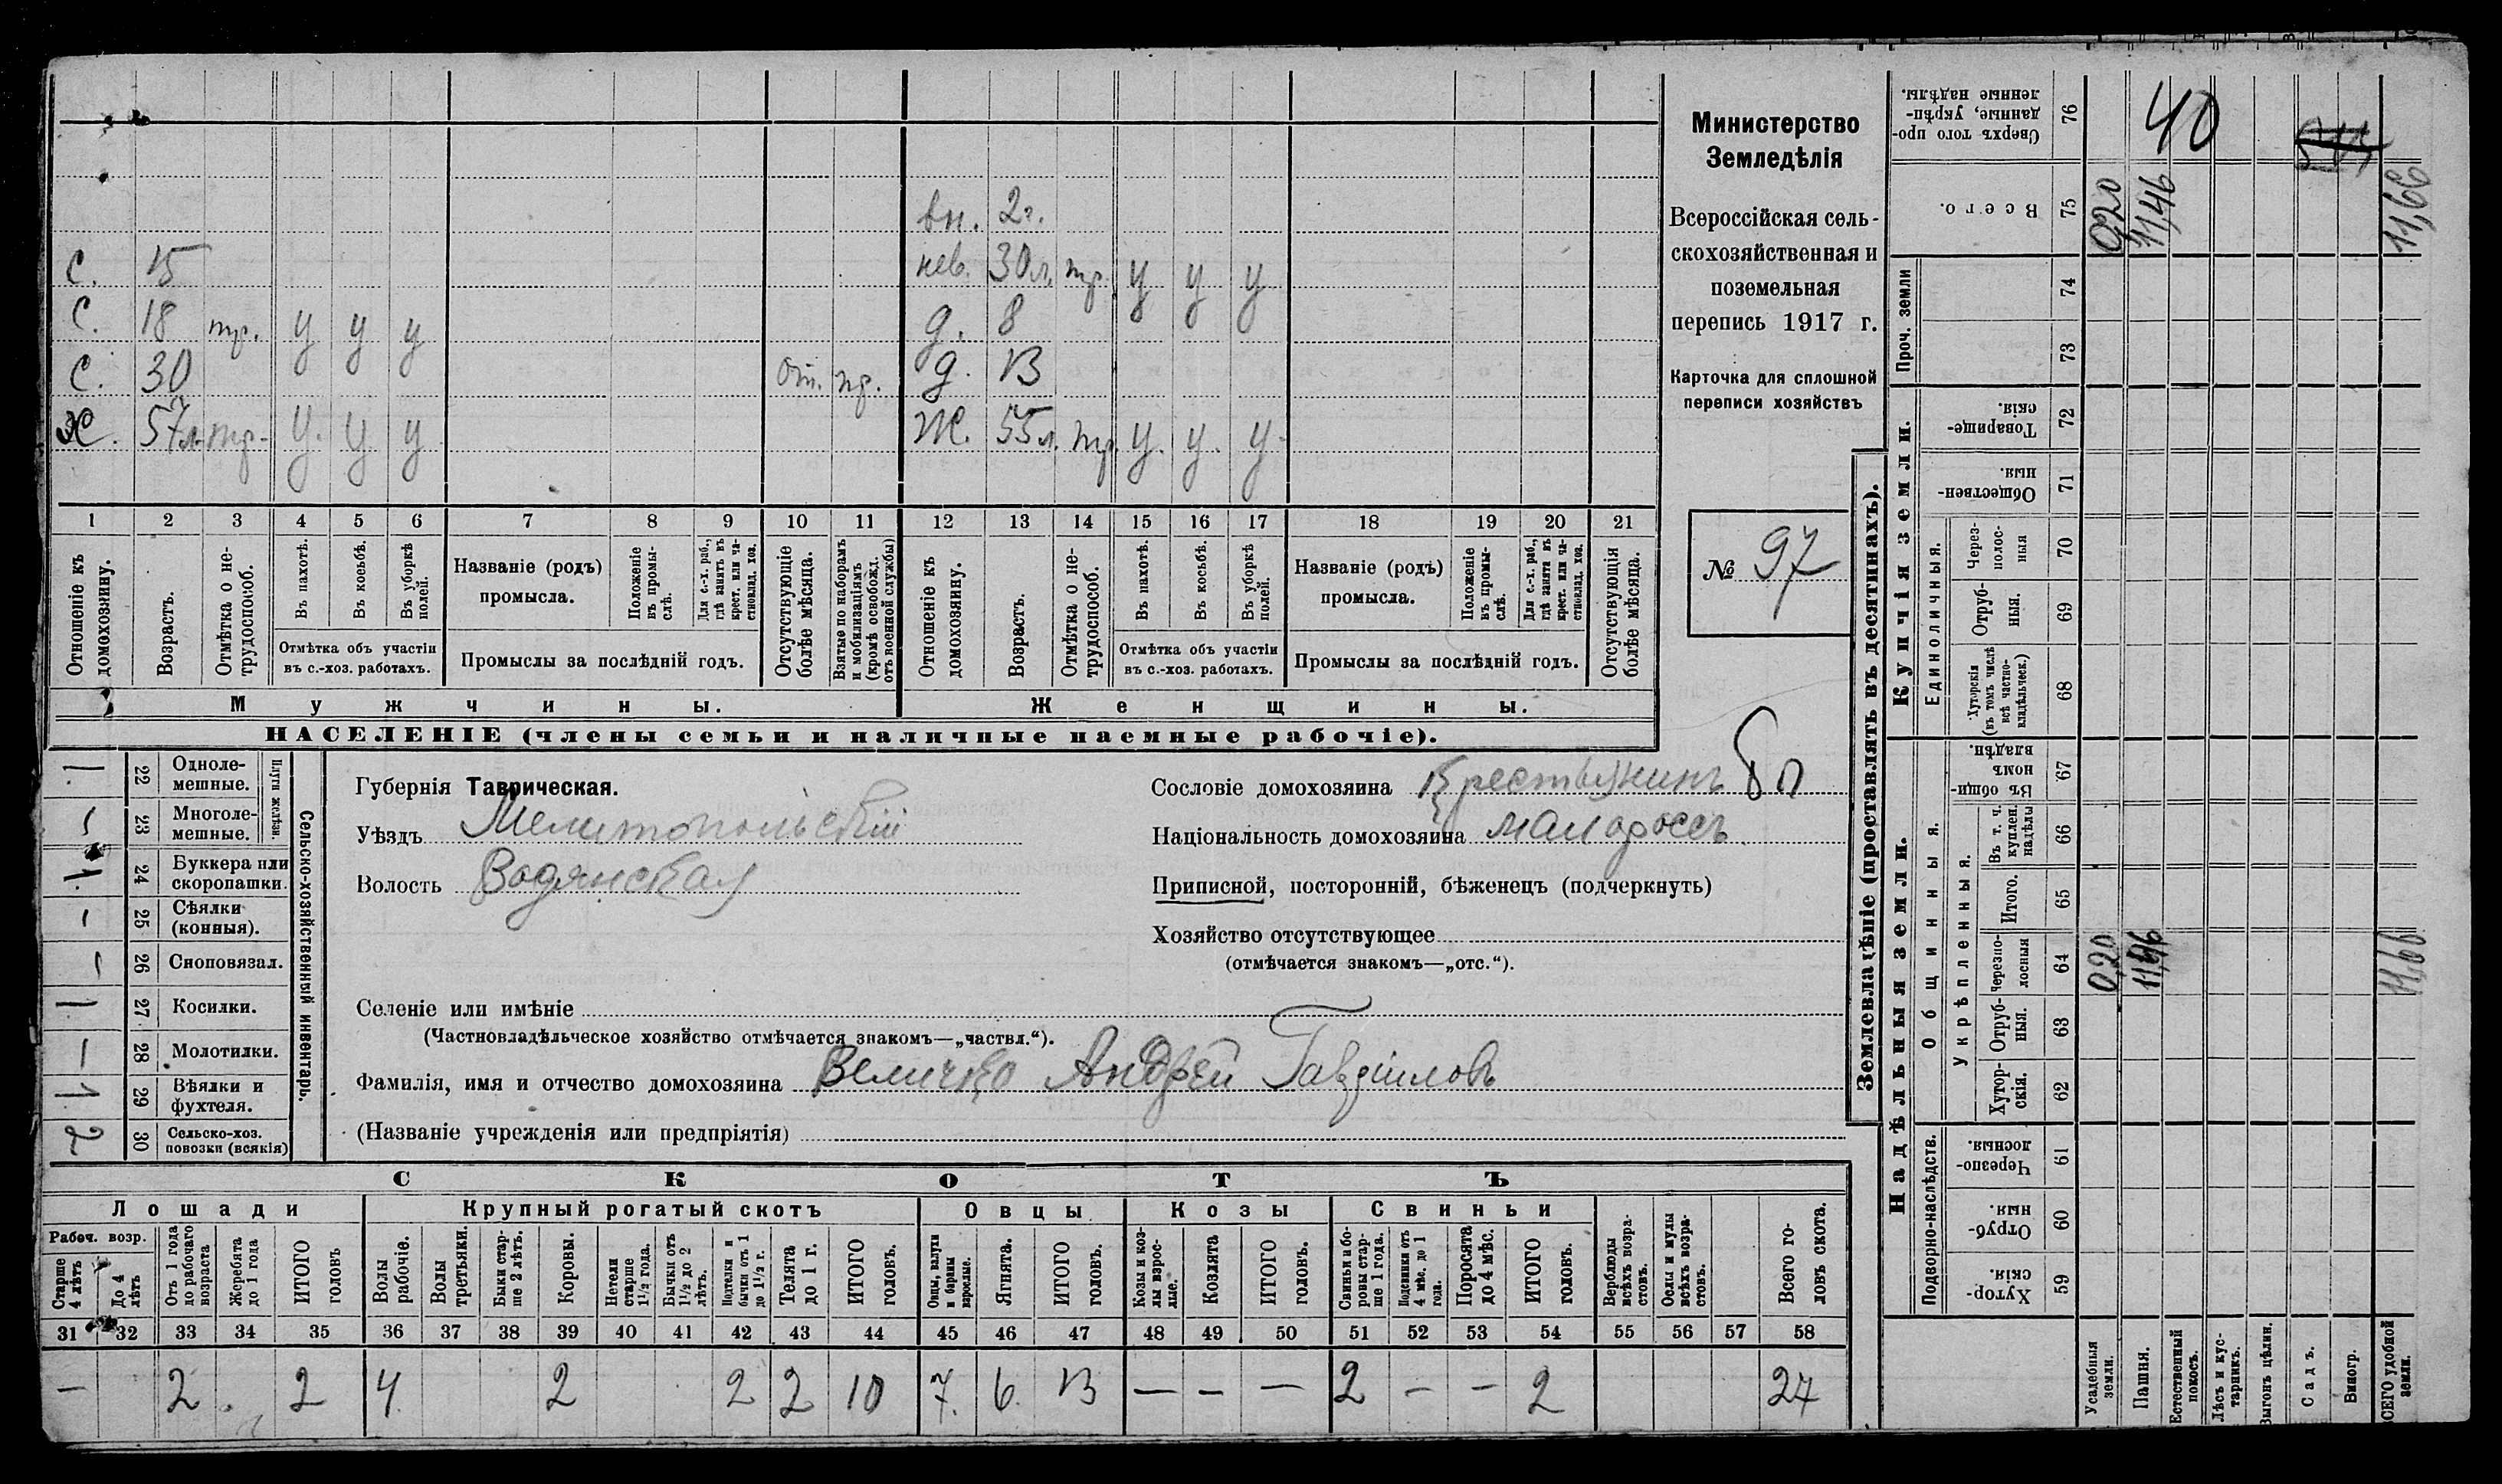 Министерство
Земледѣлія
Всероссійская сель-
скохозяйственная и
поземельная
перепись 1917 г.
Карточка для сплошной
переписи хозяйствъ
№ 97
вн. 2г.
С. 15 нев. 30л. тр. у у у
С. 18 тр. у у у д. 8
С. 30 от. пр. д. 13
Х. 57л. тр. у. у у Ж. 55л. тр. у. у. у.
1 2 3 4 5 6 7 8 9 10 11 12 13 14 15 16 17 18 19 20 21
Отношеніе къ домохозяину.
Возрастъ.
Отмѣтка о не-трудоспособ.
Въ пахотѣ.
Въ косьбѣ.
Въ уборкѣ полей.
Отмѣтка объ участіи
въ с.-хоз. работахъ.
Названіе (родъ)
промысла.
Положеніе въ промы-слѣ.
Для с.-х. раб., гдѣ занятъ въ крест. или ча-стновлад. хоз.
Промыслы за послѣдній годъ.
Отсутствующіе болѣе мѣсяца.
Взятые по наборамъ и мобилизаціямъ (кромѣ освобожд. отъ военной службы)
Отношеніе къ домохозяину.
Возрастъ.
Отмѣтка о не-трудоспособ.
Въ пахотѣ.
Въ косьбѣ.
Въ уборкѣ полей.
Отмѣтка объ участіи
въ с.-хоз. работахъ.
Названіе (родъ)
промысла.
Положеніе въ промы-слѣ.
Для с.-х. раб., гдѣ занята въ крест. или ча-стновлад. хоз.
Промыслы за послѣдній годъ.
Отсутствующія болѣе мѣсяца.
Мужчины. Женщины.
НАСЕЛЕНІЕ (члены семьи и наличные наемные рабочіе).
Сельско-хозяйственный инвентарь.
Плуги желѣзн.
1 22 Одноле-мешные.
23 Многоле-мешные.
1 24 Буккера или скоропашки.
– 25 Сѣялки (конныя).
– 26 Сноповязал.
1 27 Косилки.
– 28 Молотилки.
1 29 Вѣялки и фухтеля.
2 30 Сельско-хоз. повозки (всякія)
Губернія Таврическая.
Уѣздъ Мелитопольскій
Волость Водянская
Сословіе домохозяина Крестьянинъ
Національность домохозяина малороссъ
Приписной, посторонній, бѣженецъ (подчеркнуть)
Хозяйство отсутствующее
(отмѣчается знакомъ—„отс.“).
Селеніе или имѣніе
(Частновладѣльческое хозяйство отмѣчается знакомъ—„частвл.“).
Фамилія, имя и отчество домохозяина Величко Андрей Гавриловъ
(Названіе учрежденія или предпріятія)
СКОТЪ
Лошади Крупный рогатый скотъ Овцы Козы Свиньи
Рабоч. возр.
Старше 4 лѣтъ
До 4 лѣтъ
Отъ 1 года до рабочаго возраста
Жеребята до 1 года
ИТОГО головъ
Волы рабочіе.
Волы третьяки.
Быки стар-ше 2 лѣтъ.
Коровы.
Нетели старше 1½ года.
Бычки отъ 1½ до 2 лѣтъ.
Подтелки и бычки отъ 1 до 1½ г.
Телята до 1 г.
ИТОГО головъ.
Овцы, валухи и бараны взрослые.
Ягнята.
ИТОГО головъ.
Козы и коз-лы взрос-лые.
Козлята
ИТОГО головъ.
Свиньи и бо-ровы стар-ше 1 года.
Подсвинки отъ 4 мѣс. до 1 года.
Поросята до 4 мѣс.
ИТОГО головъ.
Верблюды всѣхъ возра-стовъ.
Ослы и мулы всѣхъ возра-стовъ.
Всего го-ловъ скота.
31 32 33 34 35 36 37 38 39 40 41 42 43 44 45 46 47 48 49 50 51 52 53 54 55 56 57 58
– 2 2 4 2 2 2 10 7. 6 13 — – — 2 – – 2 27
Землевладѣніе (проставлять въ десятинахъ).
Сверхъ того про-данные, укрѣп-ленные надѣлы. 76 40
Всего. 75 0,20 11,46 11,66
Проч. земли 74 73
Купчія земли.
Товарище-скія. 72
Обществен-ныя 71
Единоличныя.
Через-полос-ныя 70
Отруб-ныя. 69
Хуторскія (въ томъ числѣ всѣ частно-владѣльческ.) 68
Надѣльныя земли.
Общинныя.
Въ общи-номъ владѣн. 67
Укрѣпленныя.
Въ т. ч. куплен. надѣлы 66
Итого. 65
Черезпо-лосныя 64 0,20 11,46 11,66
Отруб-ныя. 63
Хутор-скія. 62
Подворно-наслѣдств.
Черезпо-лосныя. 61
Отруб-ныя. 60
Хутор-скія. 59
Усадебныя земли.
Пашня.
Естественный покосъ.
Лѣсъ и кус-тарникъ.
Выгонъ цѣлин.
Садъ.
Виногр.
ВСЕГО удобной земли.